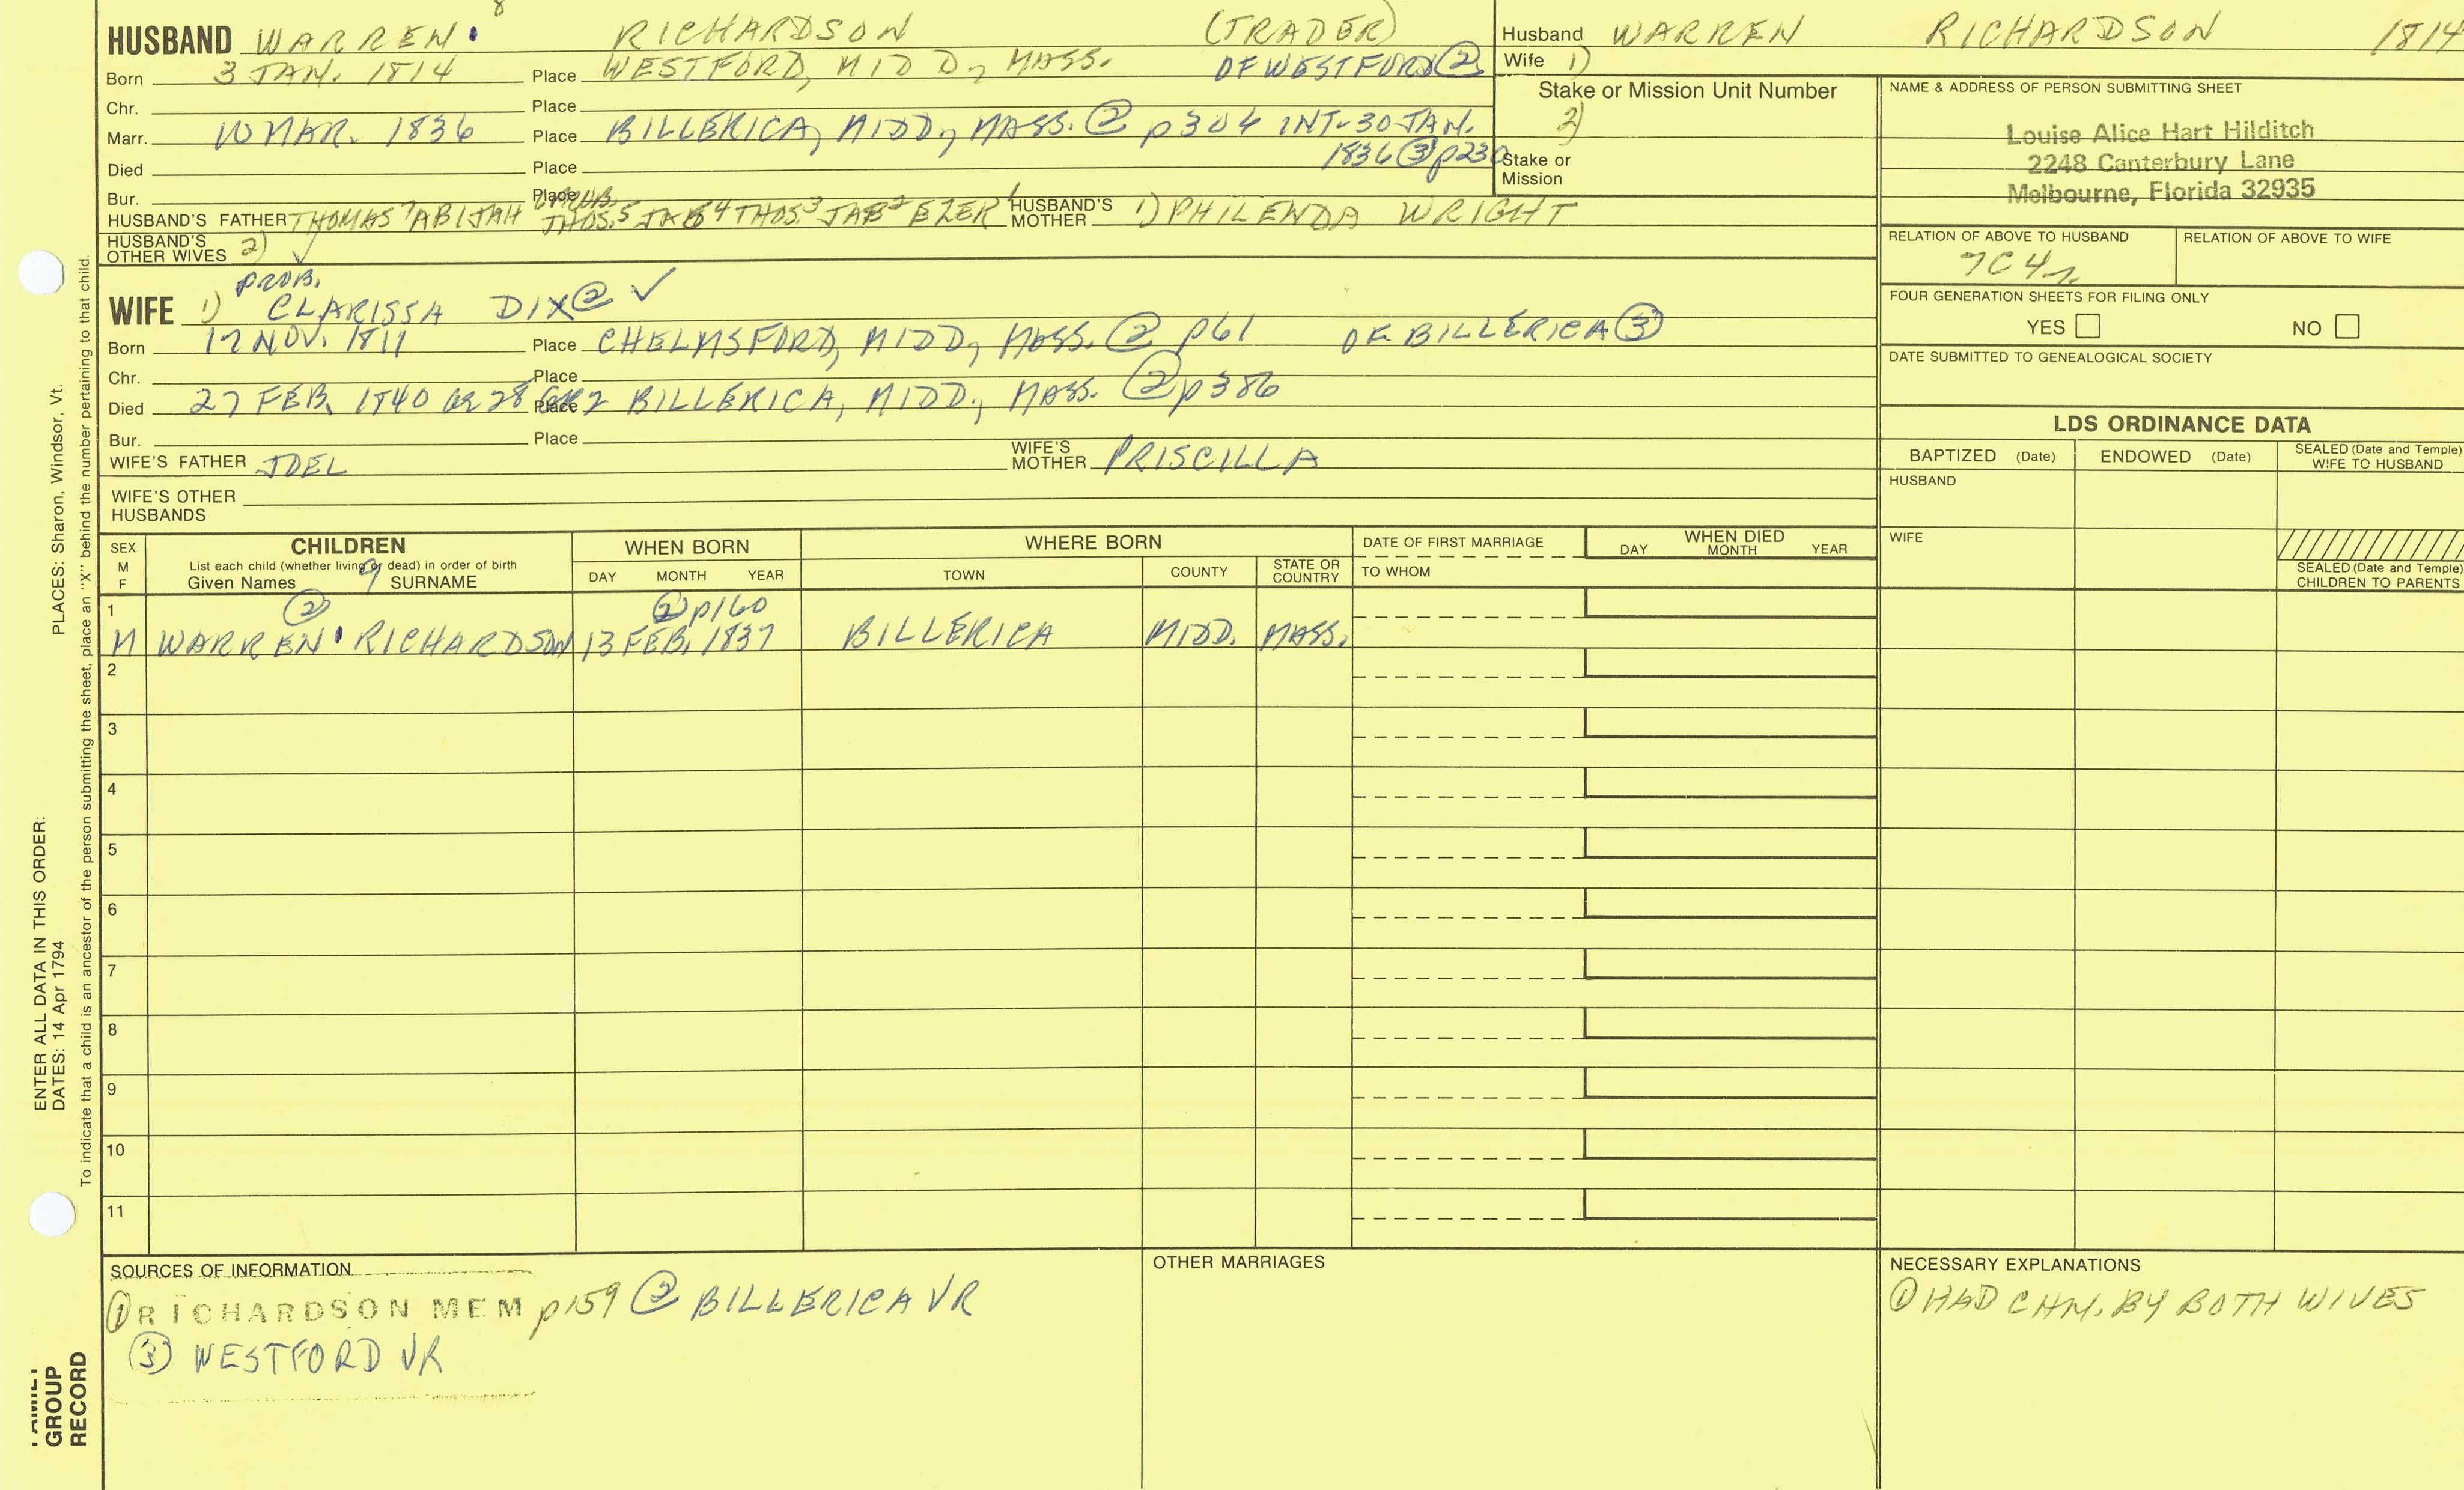 8
HUSBAND WARREN RICHARDSON (TRADER)
Born 3 JAN. 1814 Place WESTFORD, MIDD, MASS. OF WESTFORD ②
Chr. Place
Marr. 10 MAR. 1836 Place BILLERICA, MIDD, MASS. ② p304 INT-30 JAN.
1836 ③ p230
Died Place
Bur. Place PROB.
HUSBAND'S FATHER THOMAS 7 ABIJAH THOS. 5 JAB 4 THOS 3 JAB 2 EZER 1 HUSBAND'S MOTHER 1) PHILENDA WRIGHT
HUSBAND'S OTHER WIVES 2)
PROB.
WIFE 1) CLARISSA DIX ② ✓
Born 17 NOV. 1811 Place CHELMSFORD, MIDD, MASS. ② p61 OF BILLERICA ③
Chr. Place
Died 27 FEB. 1840 OR 28 Place BILLERICA, MIDD., MASS. ② p386
Bur. Place
WIFE'S FATHER JOEL WIFE'S MOTHER PRISCILLA
WIFE'S OTHER HUSBANDS
Husband WARREN RICHARDSON 1814
Wife 1)
Stake or Mission Unit Number
2)
Stake or Mission
NAME & ADDRESS OF PERSON SUBMITTING SHEET
Louise Alice Hart Hilditch
2248 Canterbury Lane
Melbourne, Florida 32935
RELATION OF ABOVE TO HUSBAND RELATION OF ABOVE TO WIFE
7C4r
FOUR GENERATION SHEETS FOR FILING ONLY
YES NO
DATE SUBMITTED TO GENEALOGICAL SOCIETY
LDS ORDINANCE DATA
BAPTIZED (Date) ENDOWED (Date) SEALED (Date and Temple) WIFE TO HUSBAND
HUSBAND
WIFE
SEALED (Date and Temple) CHILDREN TO PARENTS
SEX M F
CHILDREN
List each child (whether living or dead) in order of birth
Given Names 9 SURNAME
WHEN BORN
DAY MONTH YEAR
WHERE BORN
TOWN COUNTY STATE OR COUNTRY
DATE OF FIRST MARRIAGE
TO WHOM
WHEN DIED
DAY MONTH YEAR
1 ② ② p160
M WARREN RICHARDSON 13 FEB. 1837 BILLERICA MIDD. MASS.
2
3
4
5
6
7
8
9
10
11
SOURCES OF INFORMATION
① RICHARDSON MEM p159 ② BILLERICA VR
③ WESTFORD VR
OTHER MARRIAGES
NECESSARY EXPLANATIONS
① HAD CHN. BY BOTH WIVES
ENTER ALL DATA IN THIS ORDER:
DATES: 14 Apr 1794 PLACES: Sharon, Windsor, Vt.
To indicate that a child is an ancestor of the person submitting the sheet, place an "X" behind the number pertaining to that child.
GROUP
RECORD